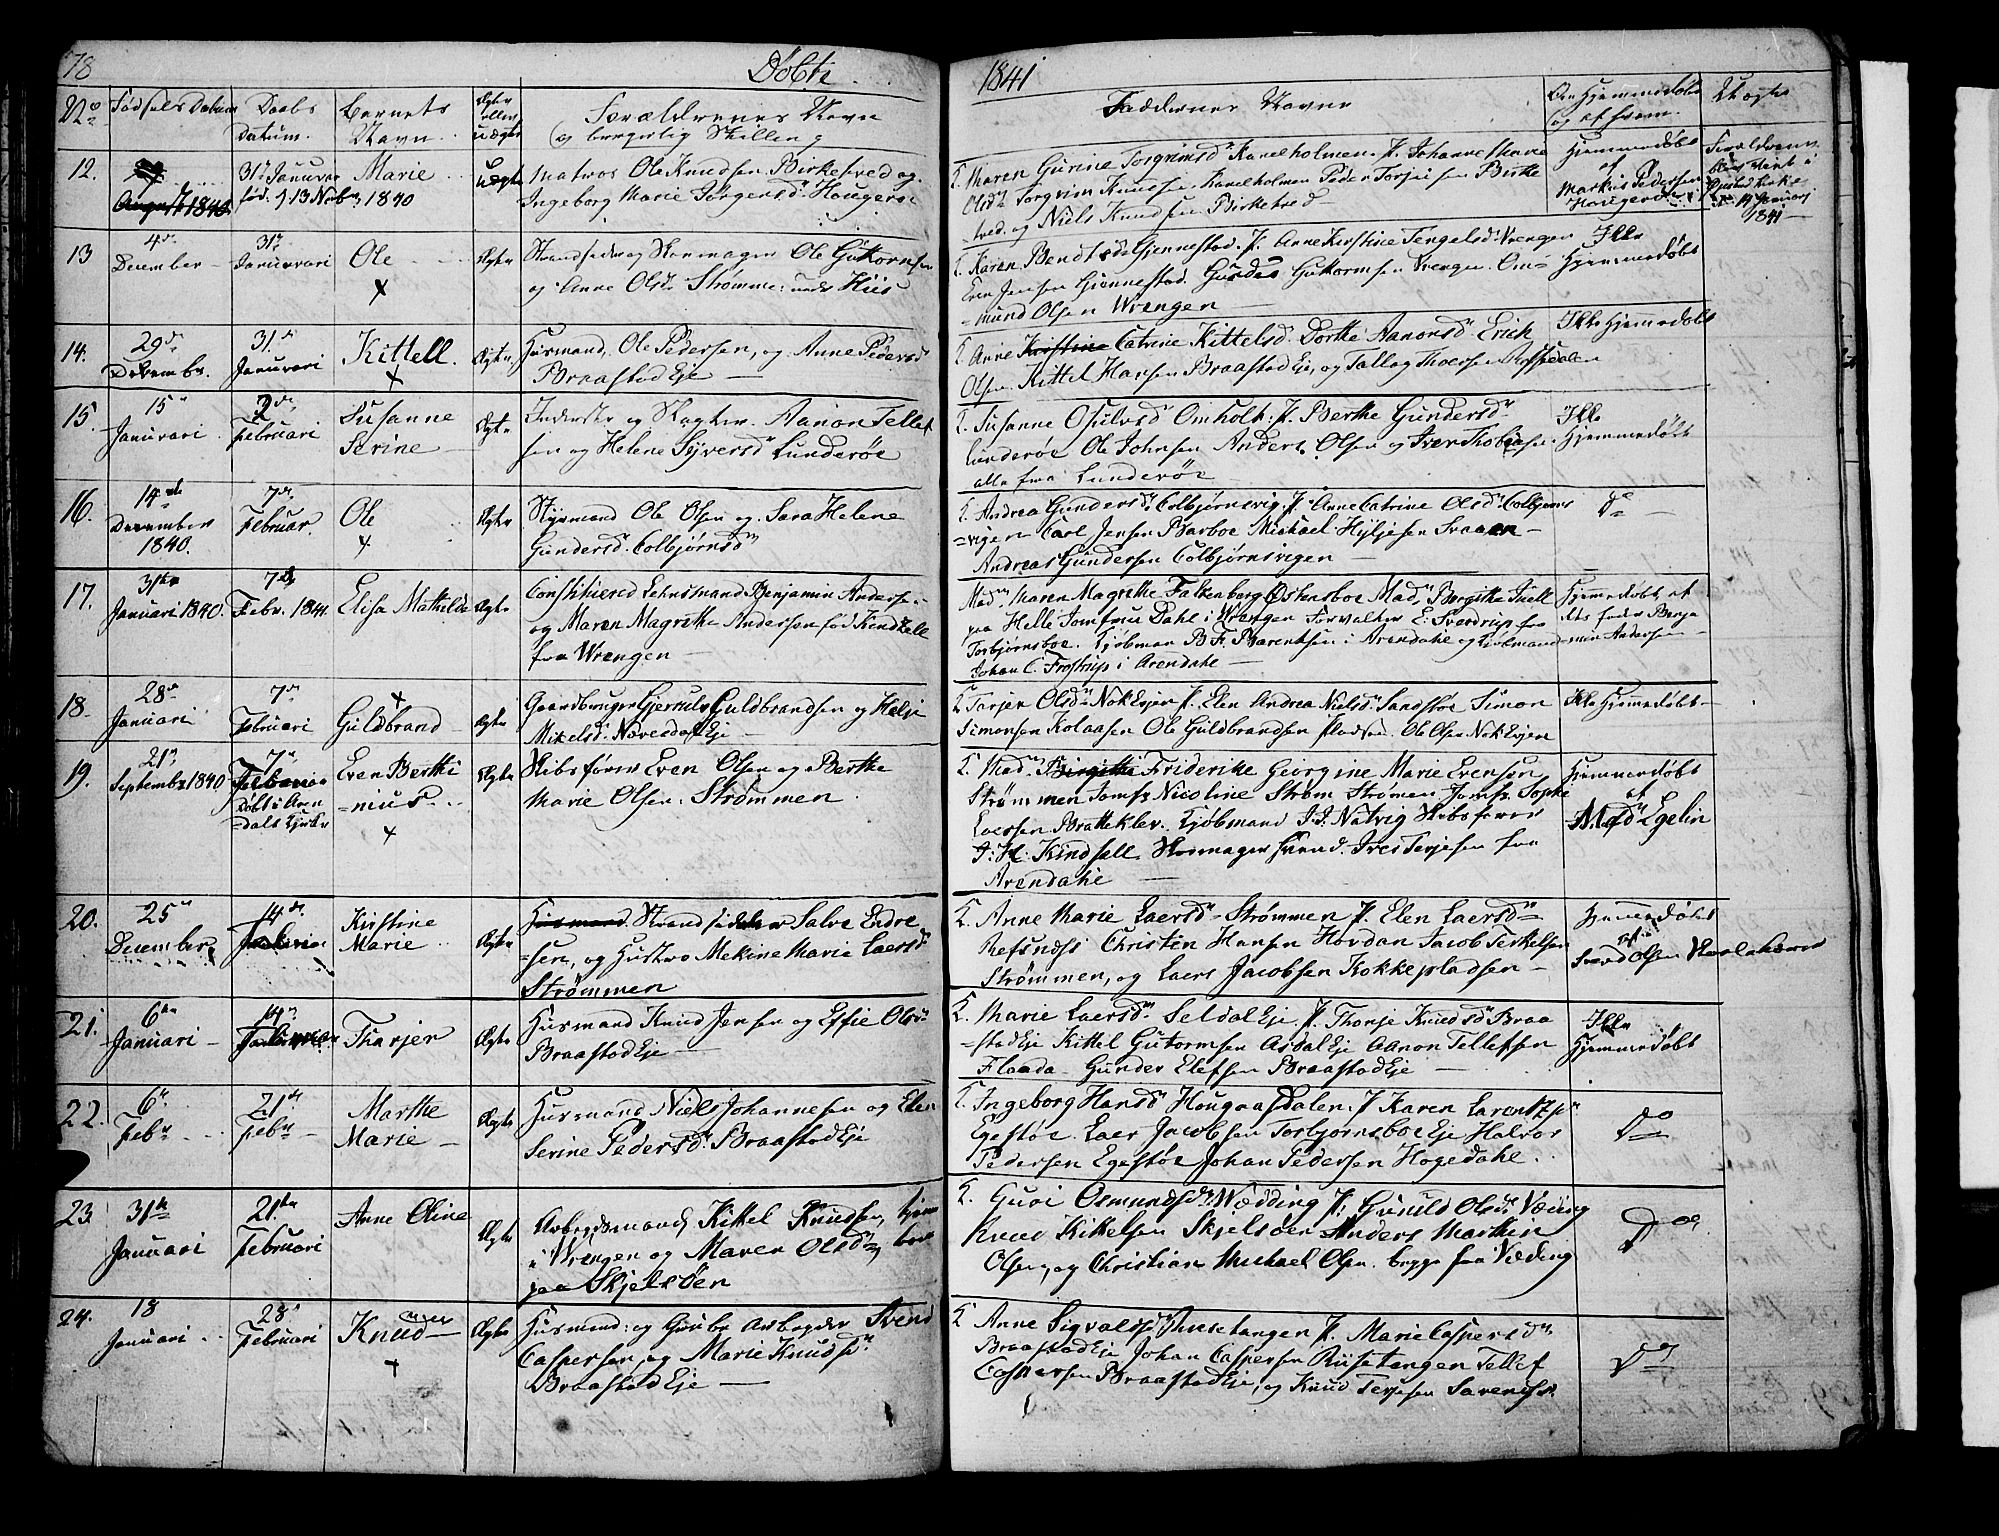 78
Döbte
1841
No
Fødsels Datum
Daabs
Datum.
Barnets
Navn
Ægte
eller
uægte
Forældrenes Navn
og borgerlig Stilling
Faddernes Navne
Om Hjemmedøbt
og af hvem.
12.
August 1840
31te Januar
fød. d 13 Novbr 1840
Marie
uægte
Matros Ole Knudsen Birketved og
Ingeborg Marie Jørgensd. Hougerø
Maren Gurine Torgrimsd. Kaneholmen. Johanne Marie
Olsd. Torgrim Knudsen Kaneholmen Peder Torjusen Birke
tved. og Niels Knudsen Birketved
Hjemmedøbt
af
Markus Pedersen
Hougerø
1841
13
4de
December
31te
Januvari
Ole
+
Ægte
Strandsidder og Skomager Ole Guttormsen
og Anne Olsd. Strømme
Karen Bendtsd. Gjennestad. Anne Kirstine Tengelsd. Wrengen
Even Jensen Gjennestad. Guttormsen Wrengen. Om=
=mund Olsen Wrengen
Ikke
Hjemmedøbt
14.
29de
Decembr.
31te
Januvari
Kittell.
+
Ægte
Husmand, Ole Pedersen, og Anne Pedersd
Braastad Eje
Anne Kristine Catrine Kittelsd. Dorthe Aanonsd. Erick
Olsen. Kittel Hansen Braastad Eje, og Tallag Thorsen
Ikke Hjemmedøbt
15.
15de
Januvari
2den
Februari
Susanne
Serine
Ægte
Inderster og Slagter. Aanon Tellef
sen og Helene Syversd. Lunderöe
Susanne Osulvsd. Omholt. Berthe Gundersd.
Lunderöe Ole Johnsen Anders Olsen og Iver Thobiasen
alle fra Lunderöe
Ikke
Hjemmedøbt
16.
14de
December
1840.
7de
Februar.
Ole
+
Ægte
Styrmand Ole Olsen og Sara Helene
Gundersd. Colbjørnsd
Andrea Gundersd. Colbjørnsvig. Anne Catrine Olsd. Colbjørns
=vigen Carl Jensen Barboe Michael
Andreas Gundersen Colbjørnsvigen
Do
17.
31te
Januari 1840.
7de
Febr. 1841.
Elisa Mathilda
Ægte
Constituered Lehnsmand Benjamin Anderse
og Maren Magrethe Andersen fød Kindtzell
fra Wrengen
Mad. Maren Magrethe Falkenberg Østensboe Mad. Bergithe Juell
paa Helle Jomfru Dahl i Wrengen Forvalter E. Sverdrup fra
Torbjørnsboe. Kjøbman B. F. Barentsen i Arendahl og Kjøbmand
Johan C. Frostrup i Arendahl
Hjemmedøbt af
dets fader Benja
min Andersen
18.
28de
Januari
7de
Februari
+
Guldbrand
Ægte
Gaardbruger Gjerrulv Guldbrandsen og Helje
Mikelsd. Nævesdal Eje
Tarjer Olsd. Nok Ejen Elen Andrea Nielsd. Sandstøe Simon
Simonsen Kolaasen Ole Guldbrandsen Pladsen. Ole Olsen Nok Ejen
Ikke Hjemmedøbt
19.
21de
Septembr 1840
7de
Februari
Døbt i Aren
=dals Kjirke
Even Berthi
=nius
+
Ægte
Skibsfører Even Olsen og Berthe
Marie Olsen. Strømmen
Mad. Birgithe Friderike Georgine Marie Evensen
Strømmen Jomf. Nicoline Strøm Strømen Jomf. Sophie
Larssen Brattekley. Kjøbmand J. J. Natvig Skibsfører
J: H: Kindsell Skomager Svend. Ives Terjesen fra
Arendahl
Hjemmedøbt
af
Mad. Egelin
20.
25de
December
14de
Januari
Kirstine
Marie
Ægte
Husmand Strandsidder Salve Endre
=sen, og Hustro Mekine Marie Laersd
Strømmen
Anne Marie Laersd. Strømmen Elen Laersd.
Refsnæss Christen Hansen Hovdan Jacob Terkelsen
Strømmen, og Laers Jacobsen Kokkepladsen
Hjemmedøbt
af
Svend Olsen
21.
6te
Januari
14de
Februari
Tharjer
Ægte
Husmand Knud Jensen og Effie Olsd
Braastad Eje
Marie Laersd. Seldal Eje. Thonje Knudsd. Braa
=stad Eje Kittel Gutormsen Asdal Eje Aanon Tellefsen
Flaada Gunder Elefsen Braastad Eje
Ikke
Hjemmedøbt
22.
6te
Febr
21de
Febr
Marthe
Marie
Ægte
Husmand Niels Johannesen og Elen
Serine Pedersd. Braastad Eje
Ingeborg Hansd. Hougaasdalen. Karen Larentzd
Egestøe. Laer Jacobsen Torbjørnsboe Eje Halvor
Pedersen Egestøe Johan Pedersen Hogedahl.
Do
23
31te
Januari
21de
Februari
Anne Oline
Ægte
Arbejdsmand Kittel Knudsen,
i Wrengen og Maren Olsd
paa Skjelsöen
Guroi Osmundsd. Wædding Gunild Olsd. Væding
Knud Kittelsen Skjelsöen Anders Marthin
Olsen, og Christian Michael Olsen. begge fra Væding
Do
24.
18
Januari
28de
Februari
Knud
+
Ægte
Husmand og Grube Arbejder Svend
Caspersen, og Marie Knudsd
Braastad Eje
Anne Sigvalsd. Marie Caspersd.
Braastad Eje Johan Caspersen Riisetangen Tellef
Caspersen Braastad Eje, og Knud Terjesen
Do